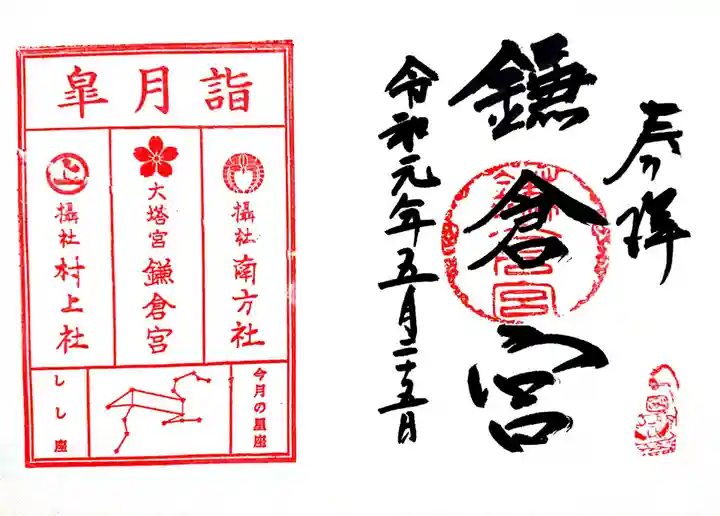 奉拝
鎌倉宮
令和元年五月二十五日
鎌倉宮
皐月詣
攝社 南方社
大塔宮 鎌倉宮
攝社 村上社
今月の星座
しし座